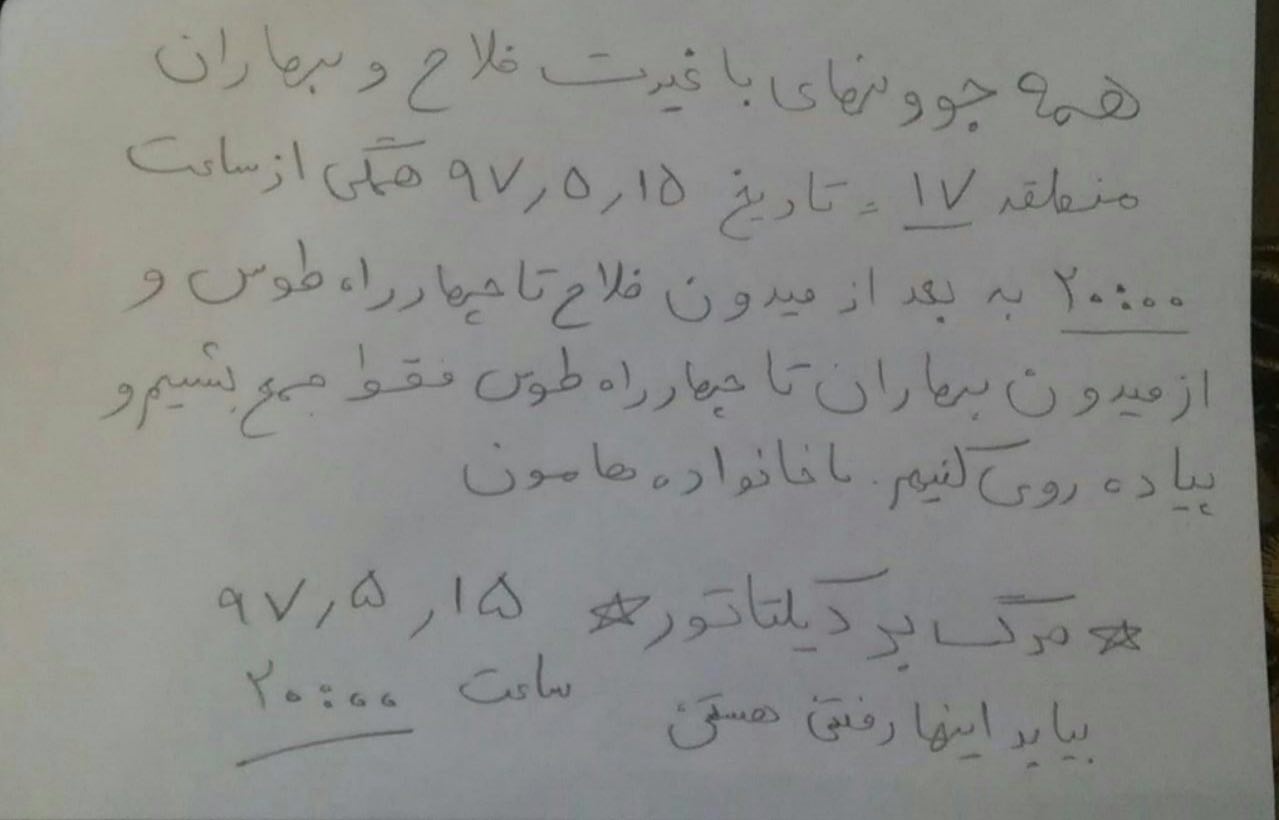 همه جوونهای باغیرت فلاح و بهاران
منطقه ۱۷ = تاریخ ۹۷٫۵٫۱۵ همگی از ساعت
۲۰:۰۰ به بعد از میدون فلاح تا چهارراه طوس و
از میدون بهاران تا چهارراه طوس فقط جمع بشیم و
پیاده روی کنیم. با خانواده هامون
☆ مرگ بر دیکتاتور ☆ ۹۷٫۵٫۱۵
بیاید اینها رفتنی هستن ساعت ۲۰:۰۰